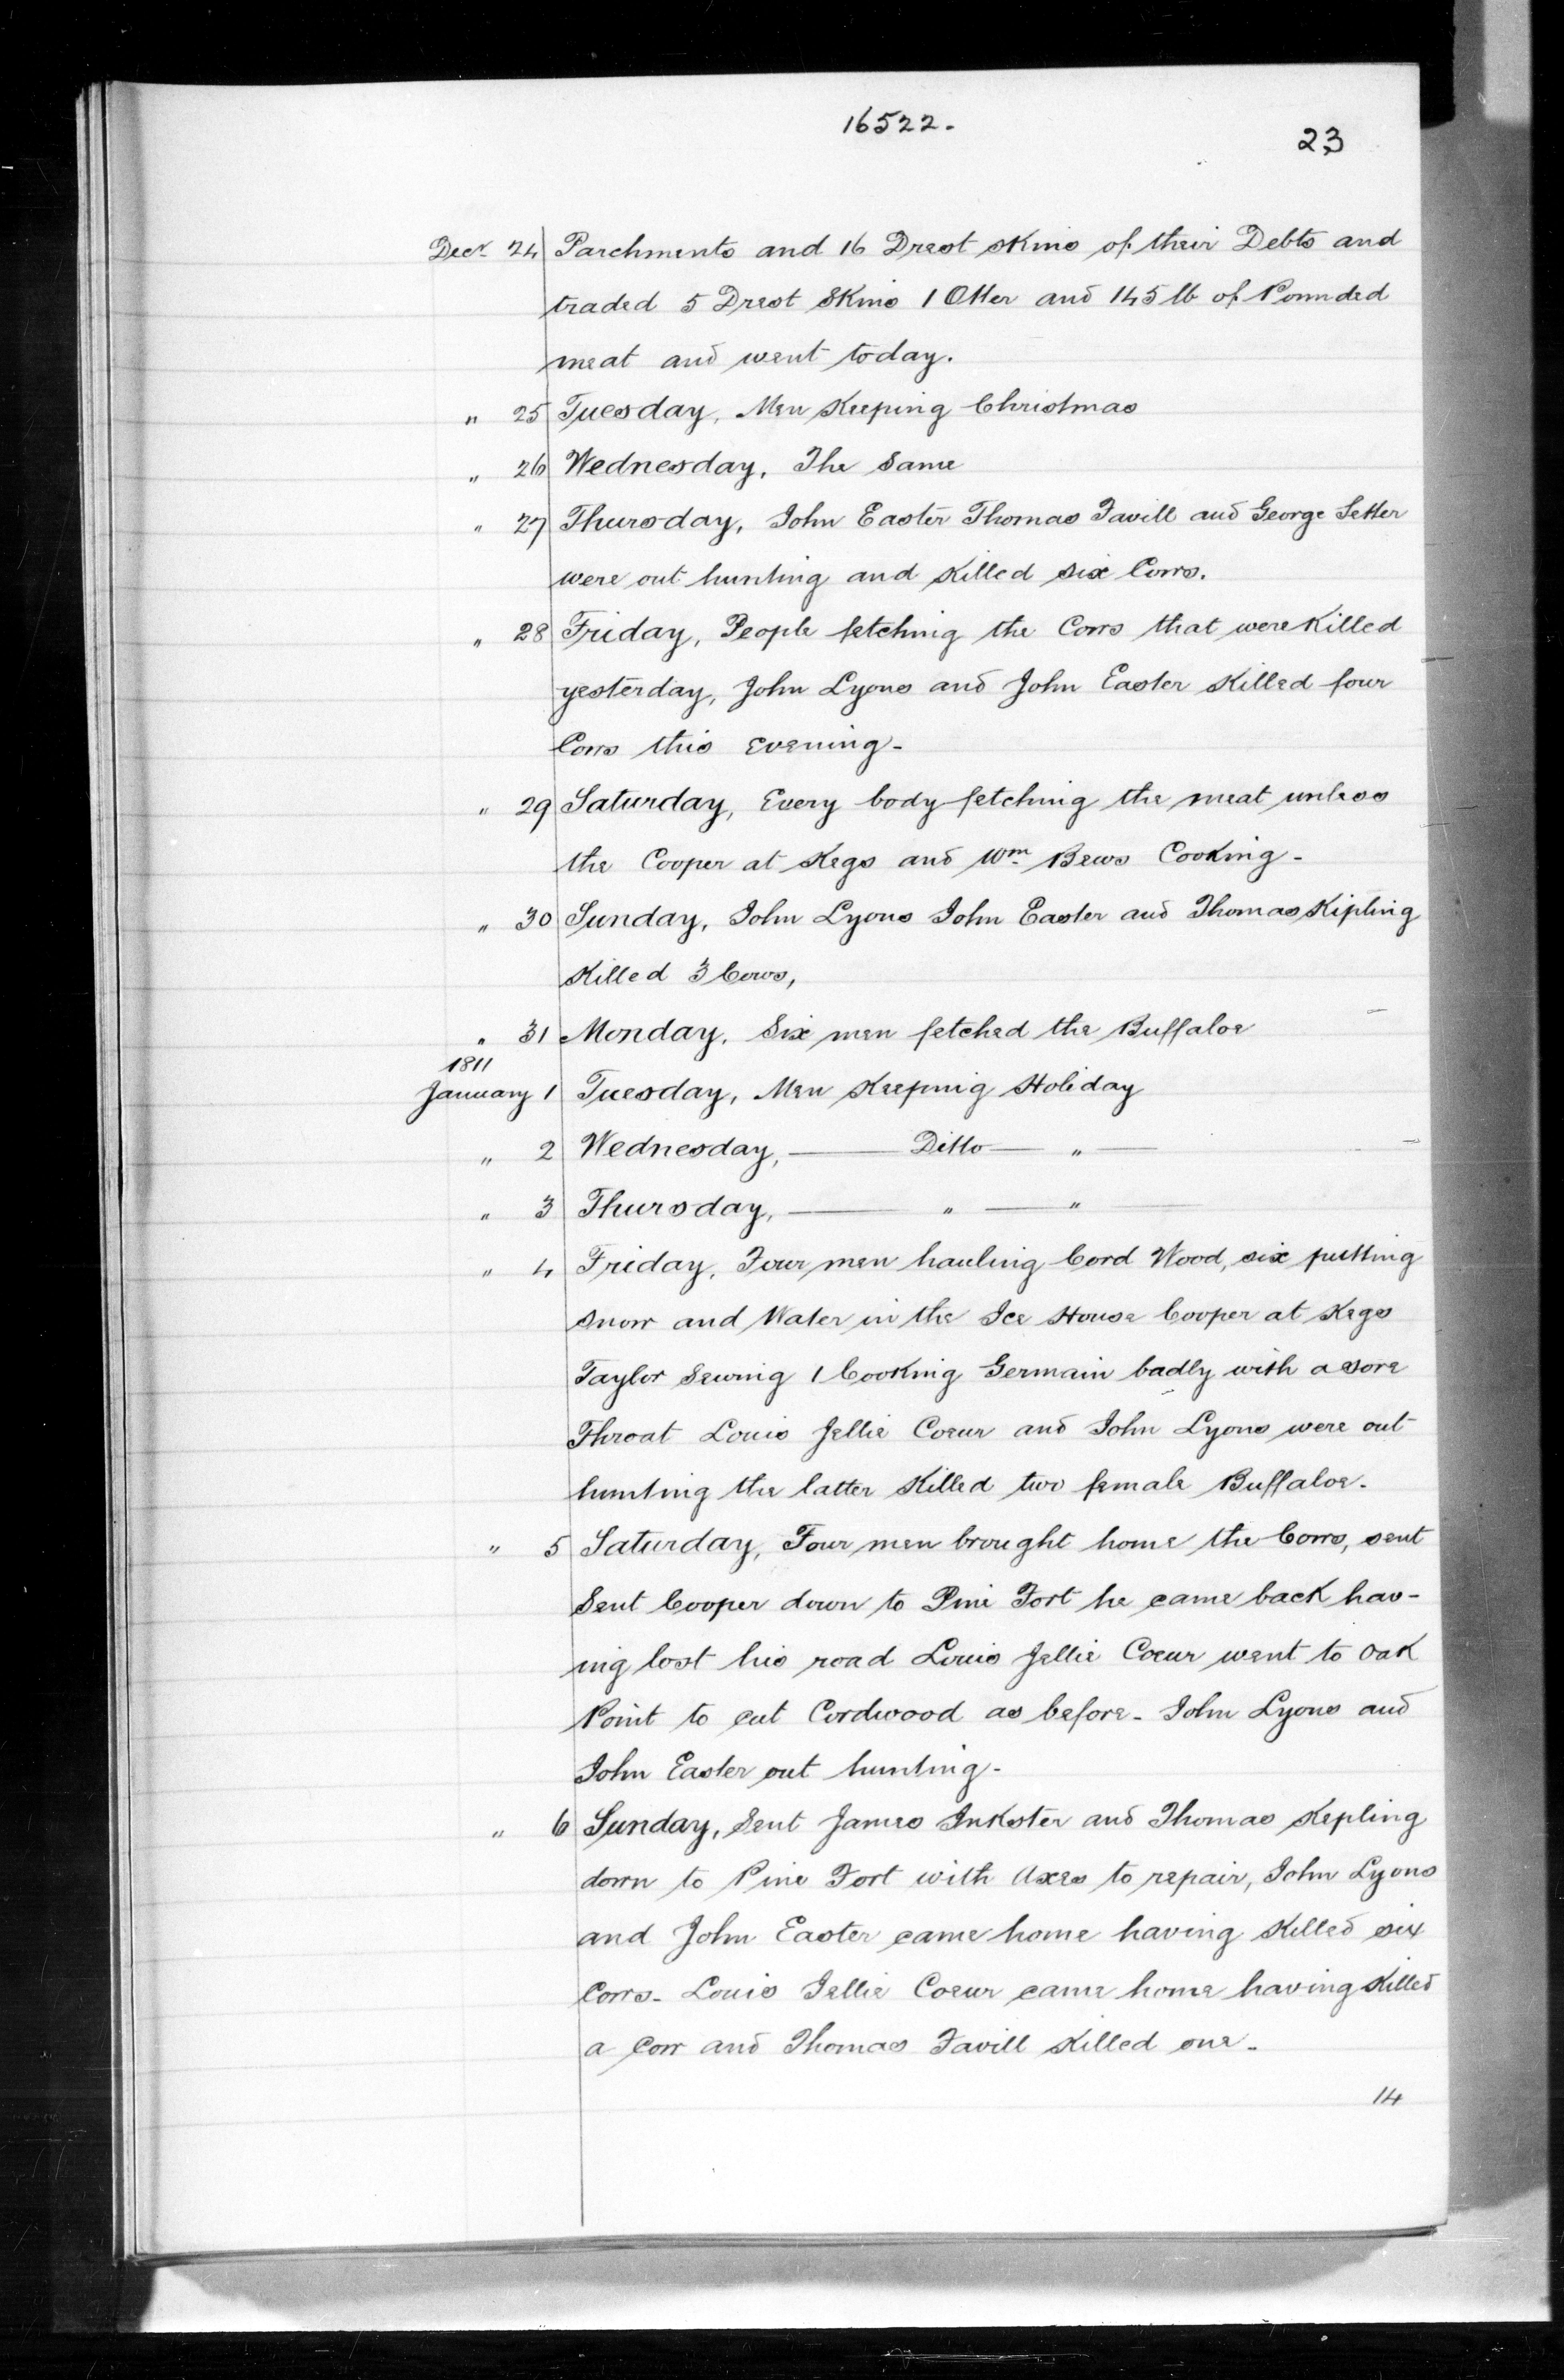 16522.
23
Decr 24 Parchments and 16 Drest skins of their Debts and
traded 5 Drest Skins 1 Otter and 145 lb of Pounded
meat and went today.
" 25 Tuesday, Men Keeping Christmas
" 26 Wednesday, The Same
" 27 Thursday, John Easter Thomas Favill and George Setter
were out hunting and Killed six Cows.
" 28 Friday, People fetching the Cows that were Killed
yesterday, John Lyons and John Easter Killed four
Cows this evening-
" 29 Saturday, Every body fetching the meat unless
the Cooper at Kegs and Wm Bews Cooking-
" 30 Sunday, John Lyons John Easter and Thomas Kipling
Killed 3 Cows,
" 31 Monday, Six men fetched the Buffaloe
1811
January 1 Tuesday, Men Keeping Holiday
" 2 Wednesday, — Ditto — " —
" 3 Thursday, — " — "
" 4 Friday, Four men hauling Cord Wood, six putting
snow and Water in the Ice House Cooper at Kegs
Taylor Sewing 1 Cooking Germain badly with a sore
Throat Louis Jellie Coeur and John Lyons were out
hunting the latter Killed two female Buffaloe.
" 5 Saturday, Four men brought home the Cows, sent
Sent Cooper down to Pine Fort he came back hav-
ing lost his road Louis Jellie Coeur went to Oak
Point to cut Cordwood as before- John Lyons and
John Easter out hunting-
" 6 Sunday, Sent James Inkster and Thomas Kepling
down to Pine Fort with Axes to repair, John Lyons
and John Easter came home having Killed six
Cows- Louis Jellie Coeur came home having Killed
a Cow and Thomas Favill Killed one-
14